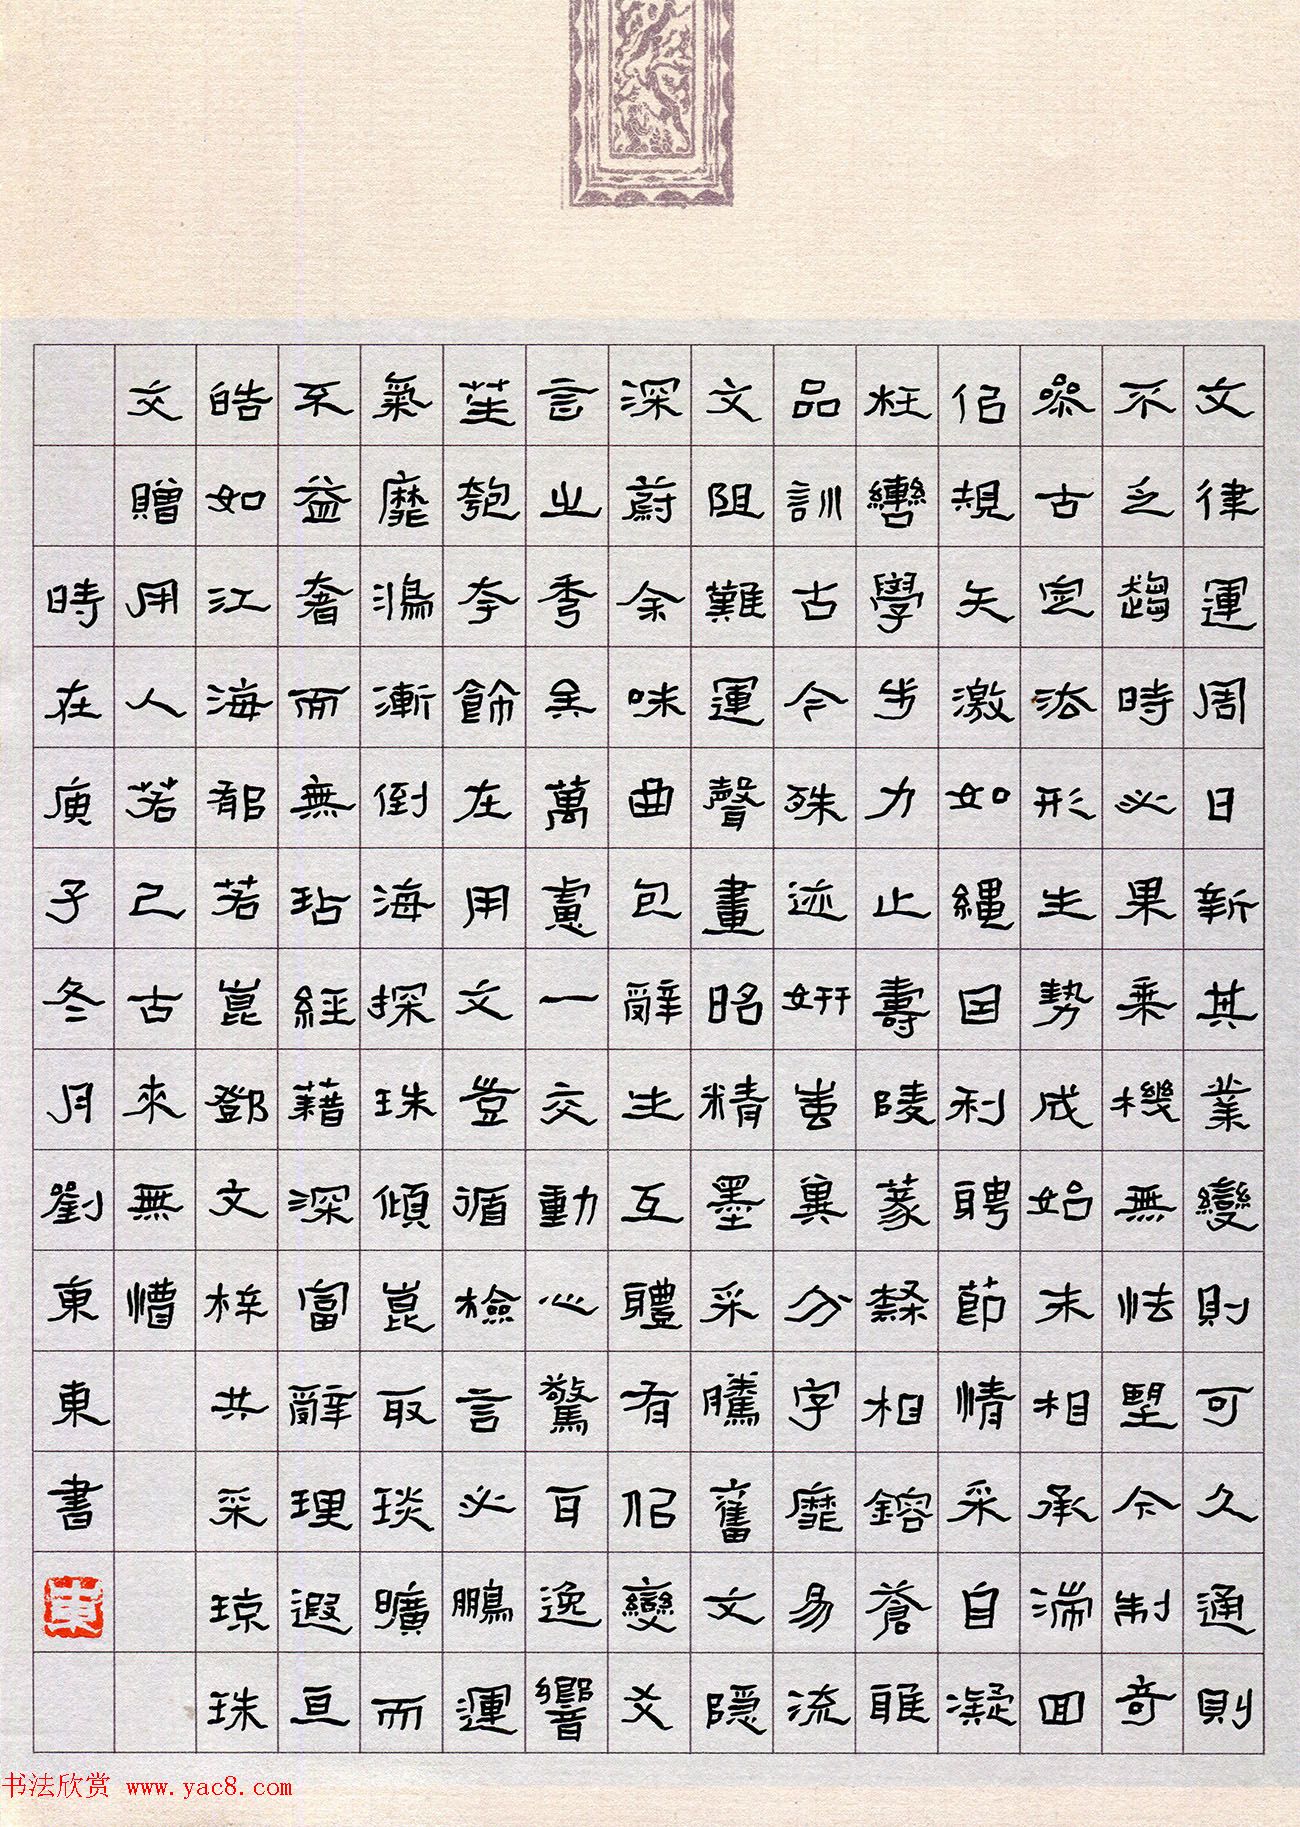 文律運周日新其業變則可久通則
不乏趨時必果乘機無怯望今制奇
參古定法形生勢成始末相承湍回
似規矢激如繩因利聘節情采自凝
枉轡學步力止壽陵篆隸相鎔蒼雅
品訓古今殊迹妍蚩異分字靡易流
文阻難運聲畫昭精墨采騰奮文隱
深蔚余味曲包辭生互體有似變爻
言之秀矣萬慮一交動心驚耳逸響
笙匏夸飾在用文豈循檢言必鵬運
氣靡鴻漸倒海探珠傾崑取琰曠而
不益奢而無玷經藉深富辭理遐亘
皓如江海郁若崑鄧文梓共采琼珠
交贈用人若己古來無懵
時在庚子冬月劉東東書
東
书法欣赏 www.yac8.com